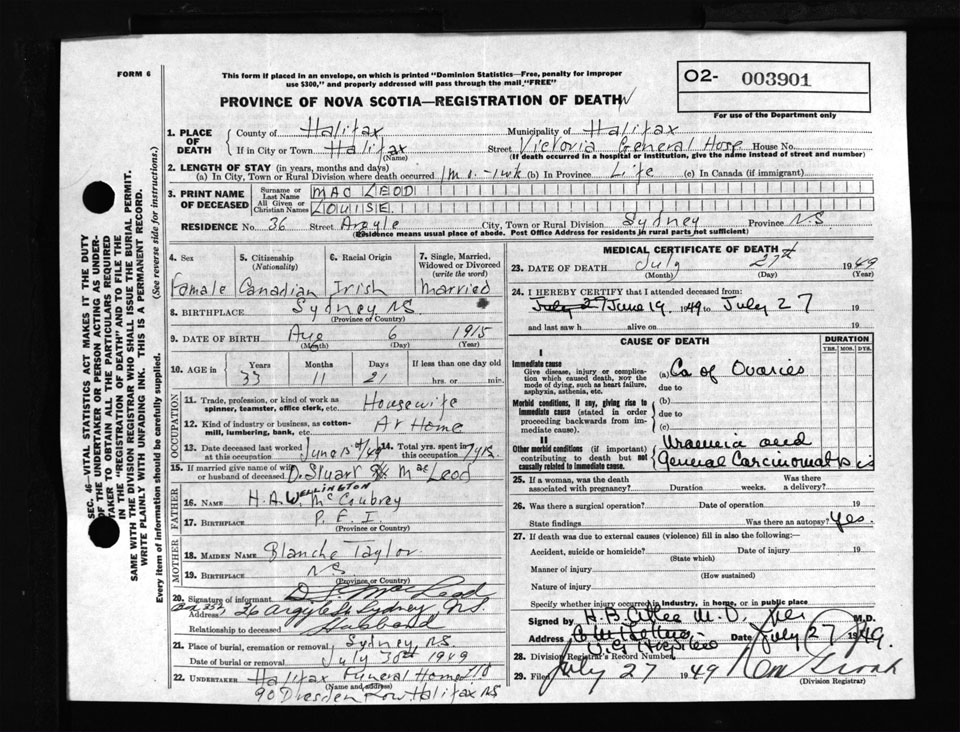 FORM 6
This form if placed in an envelope, on which is printed "Dominion Statistics—Free, penalty for improper
use $300," and properly addressed will pass through the mail "FREE"
O2- 003901
For use of the Department only
PROVINCE OF NOVA SCOTIA—REGISTRATION OF DEATH
SEC. 46—VITAL STATISTICS ACT MAKES IT THE DUTY
OF THE UNDERTAKER OR PERSON ACTING AS UNDER-
TAKER TO OBTAIN ALL THE PARTICULARS REQUIRED
IN THE "REGISTRATION OF DEATH" AND TO FILE THE
SAME WITH THE DIVISION REGISTRAR WHO SHALL ISSUE THE BURIAL PERMIT.
WRITE PLAINLY WITH UNFADING INK. THIS IS A PERMANENT RECORD.
Every item of information should be carefully supplied. (See reverse side for instructions.)
1. PLACE OF DEATH
County of Halifax Municipality of Halifax
If in City or Town Halifax Street Victoria General Hosp House No.
(Name) (If death occurred in a hospital or institution, give the name instead of street and number)
2. LENGTH OF STAY (in years, months and days)
(a) In City, Town or Rural Division where death occurred 1 mo. - 1 wk (b) In Province Life (c) In Canada (if immigrant)
3. PRINT NAME OF DECEASED
Surname or Last Name MAC LEOD
All Given or Christian Names LOUISE
RESIDENCE No. 36 Street Argyle City, Town or Rural Division Sydney Province N.S
(Residence means usual place of abode. Post Office Address for residents in rural parts not sufficient)
4. Sex 5. Citizenship (Nationality) 6. Racial Origin 7. Single, Married, Widowed or Divorced (write the word)
Female Canadian Irish Married
8. BIRTHPLACE Sydney N.S.
(Province or Country)
9. DATE OF BIRTH Aug 6 1915
(Month) (Day) (Year)
10. AGE IN Years Months Days If less than one day old
33 11 21 hrs. or min.
OCCUPATION
11. Trade, profession, or kind of work as spinner, teamster, office clerk, etc. Housewife
12. Kind of industry or business, as cotton-mill, lumbering, bank, etc. At Home
13. Date deceased last worked at this occupation June 15th/49 14. Total yrs. spent in this occupation 7 yrs.
15. If married give name of wife or husband of deceased D. Stuart Mac Leod
FATHER
WELLINGTON
16. NAME H.A.W. McCoubrey
17. BIRTHPLACE P.E.I.
(Province or Country)
MOTHER
18. MAIDEN NAME Blanche Taylor
19. BIRTHPLACE N.S.
(Province or Country)
20. Signature of informant D.S. MacLeod
Address Box 352, 36 Argyle St Sydney N.S.
Relationship to deceased Husband
21. Place of burial, cremation or removal Sydney N.S.
Date of burial or removal July 30th 1949
22. UNDERTAKER Halifax Funeral Home Ltd
(Name and address)
90 Dresden Row Halifax NS
MEDICAL CERTIFICATE OF DEATH
23. DATE OF DEATH July 27th 1949
(Month) (Day) (Year)
24. I HEREBY CERTIFY that I attended deceased from:
July 27 June 19 1949 to July 27 19
and last saw h alive on 19
CAUSE OF DEATH DURATION
YRS. MOS. DYS.
I
Immediate cause
Give disease, injury or complication which caused death, NOT the mode of dying, such as heart failure, asphyxia, asthenia, etc.
(a) Ca of Ovaries
due to
Morbid conditions, if any, giving rise to immediate cause (stated in order proceeding backwards from immediate cause).
(b)
due to
(c)
II
Other morbid conditions (if important) contributing to death but not causally related to immediate cause.
Uraemia and
General Carcinomatosis
25. If a woman, was the death associated with pregnancy? Duration weeks. Was there a delivery?
26. Was there a surgical operation? Date of operation 19
State findings Was there an autopsy? Yes.
27. If death was due to external causes (violence) fill in also the following:
Accident, suicide or homicide? Date of injury 19
(State which)
Manner of injury
(How sustained)
Nature of injury
Specify whether injury occurred in industry, in home, or in public place
Signed by M.D. M.D.
Address Date July 27 1949.
28. Division Registrar's Record Number
29. Filed July 27 1949
(Division Registrar)